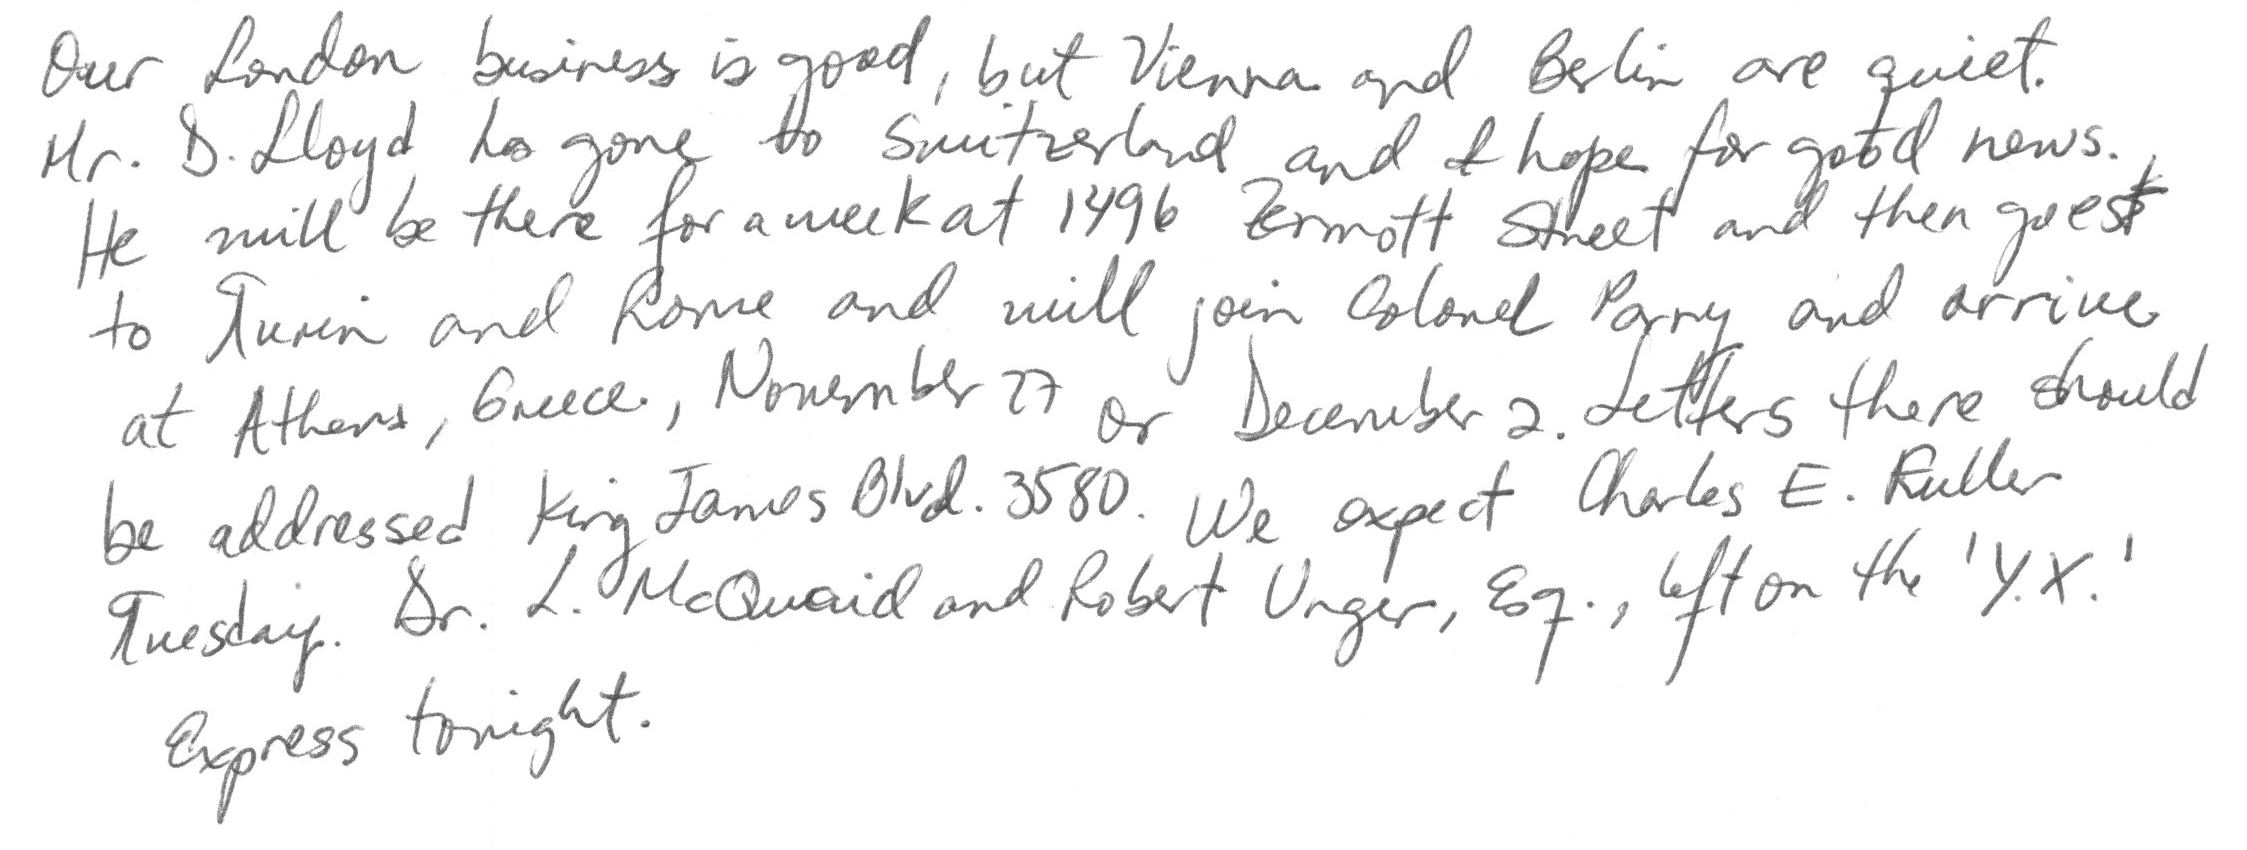 Our London business is good, but Vienna and Berlin are quiet.
Mr. D. Lloyd has gone to Switzerland and I hope for good news.
He will be there for a week at 1496 Zermott Street and then goes
to Turin and Rome and will join Colonel Parry and arrive
at Athens, Greece, November 27 or December 2. Letters there should
be addressed King James Blvd. 3580. We expect Charles E. Fuller
Tuesday. Dr. L. McQuaid and Robert Unger, Esq., left on the 'Y.X.'
Express tonight.